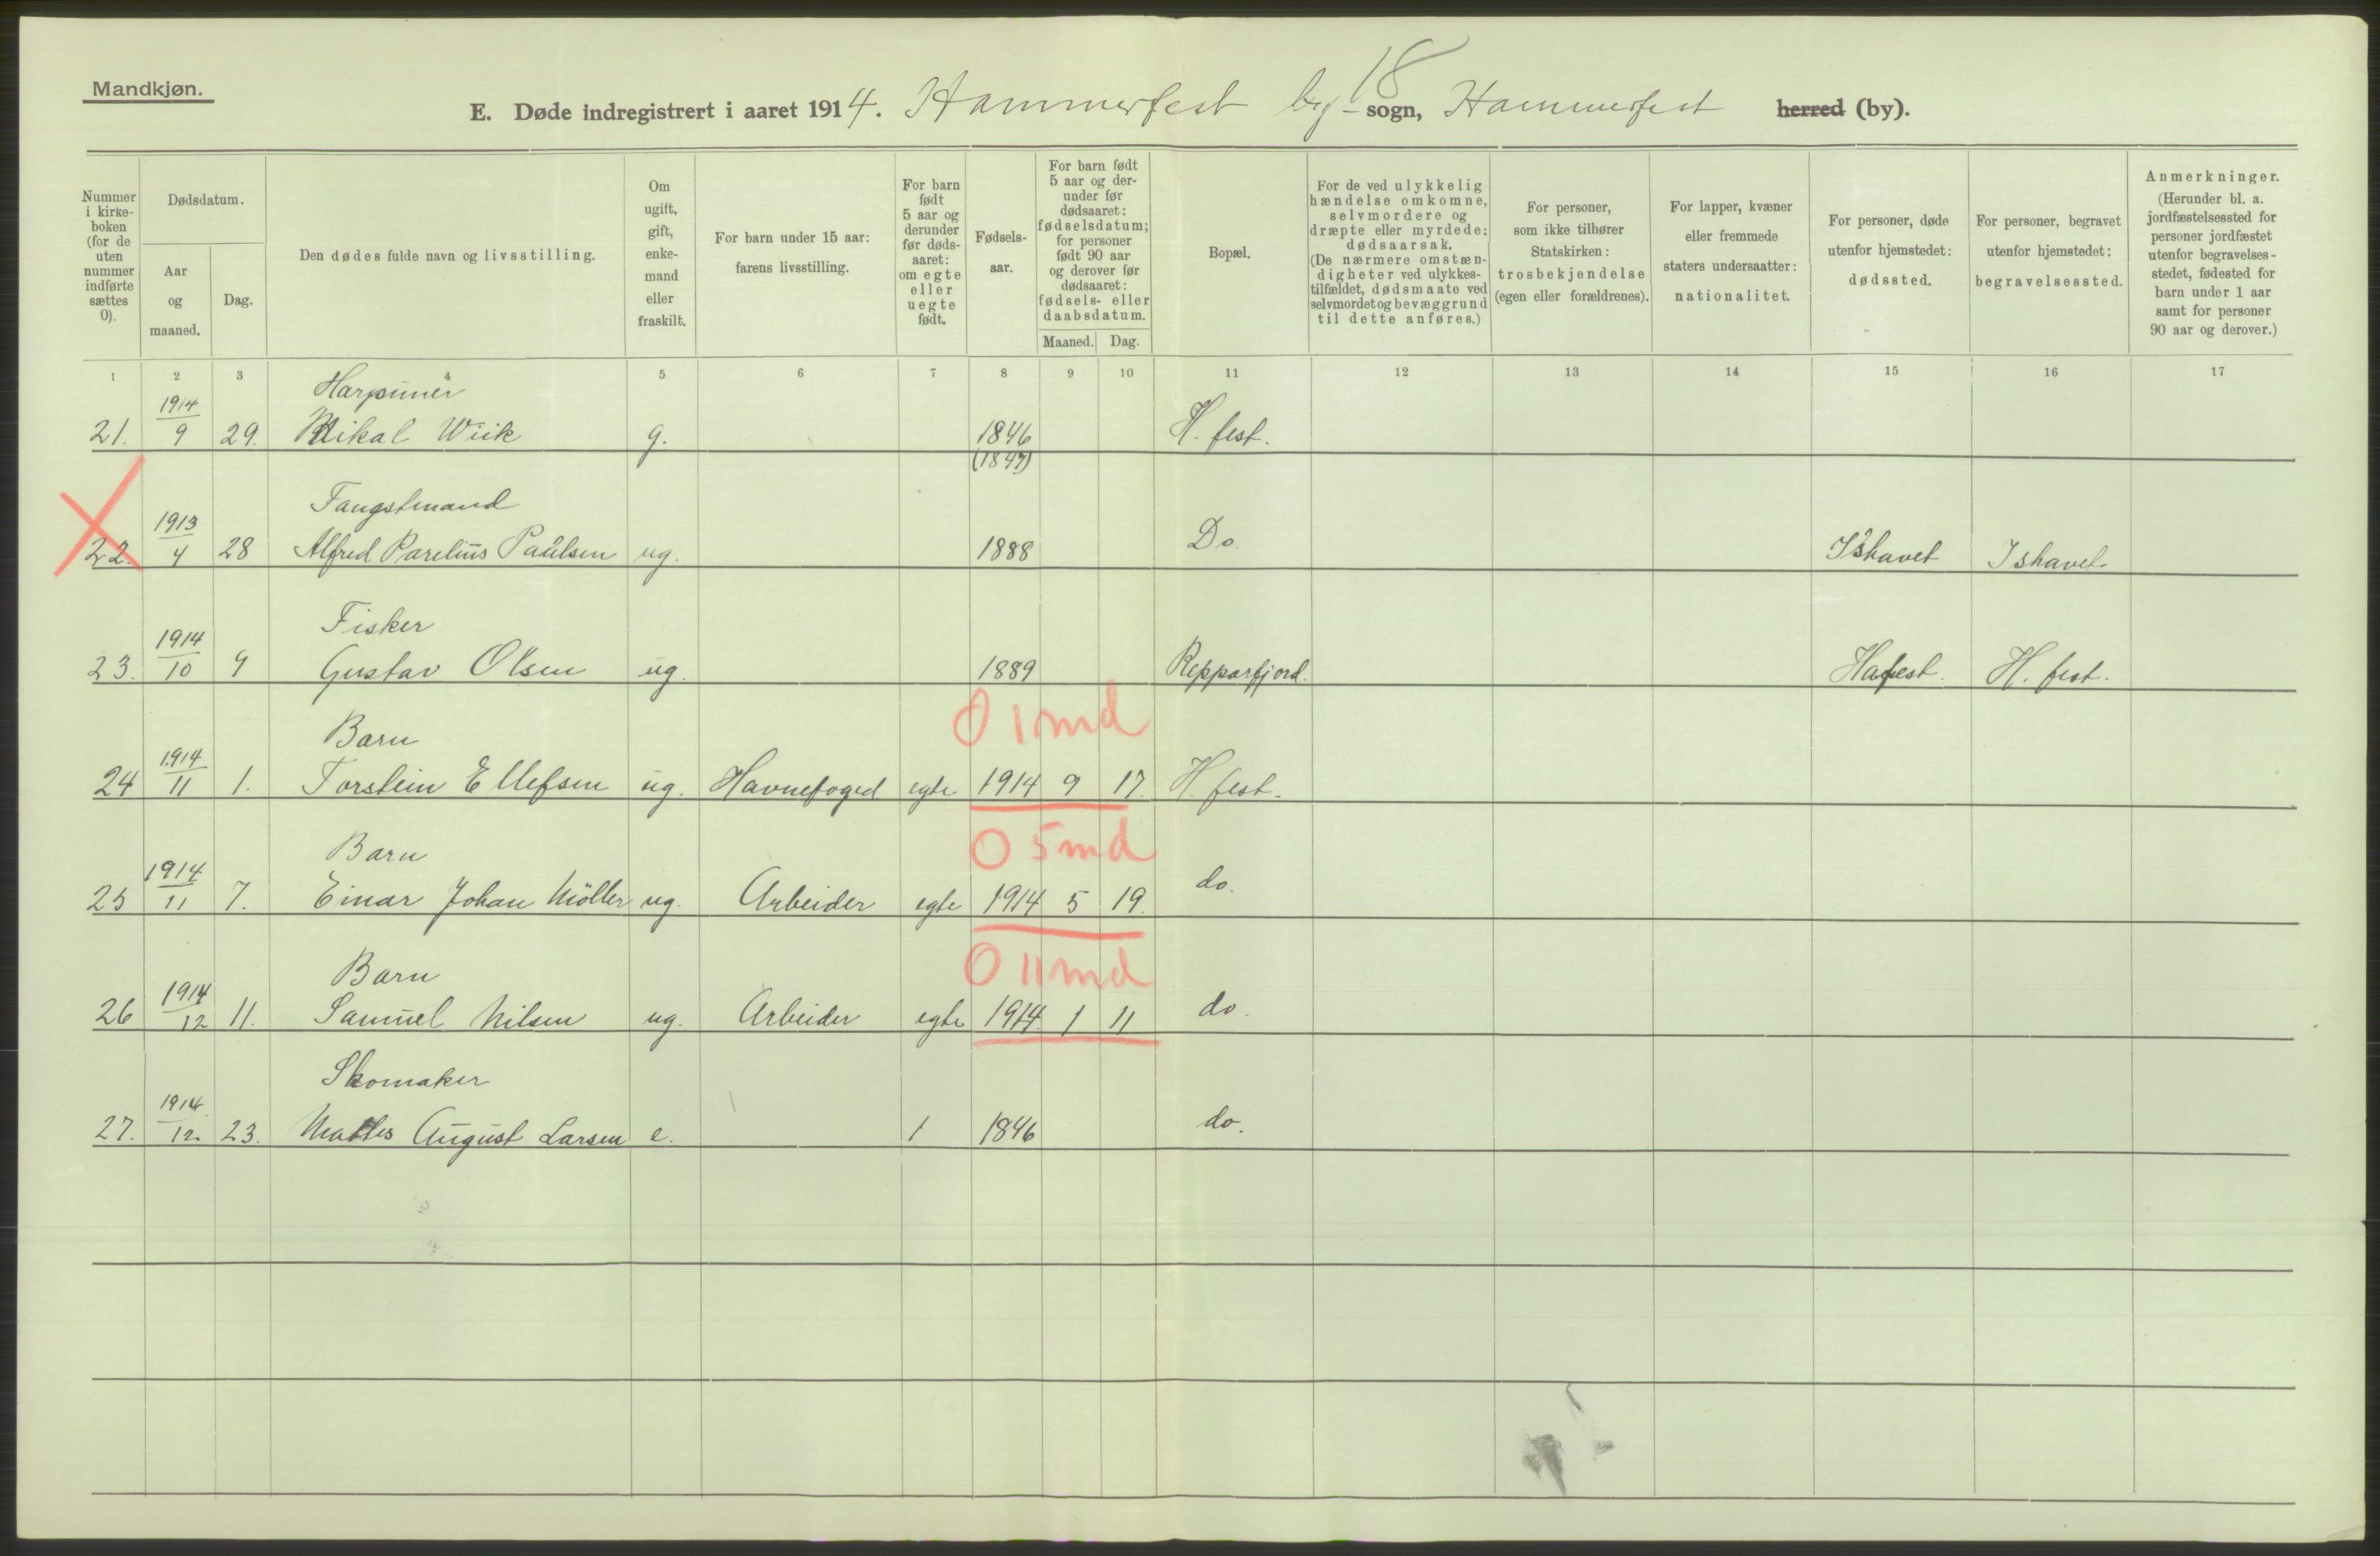 Mandkjøn.
18
E. Døde indregistrert i aaret 1914. Hammerfest by- sogn, Hammerfest herred (by).
Nummer i kirke-boken (for de uten nummer indførte sættes 0).
Dødsdatum.
Aar og maaned.
Dag.
Den dødes fulde navn og livsstilling.
Om ugift, gift, enke-mand eller fraskilt.
For barn under 15 aar: farens livsstilling.
For barn født 5 aar og derunder før døds-aaret: om egte eller uegte født.
Fødsels-aar.
For barn født 5 aar og der-under før dødsaaret: fødselsdatum; for personer født 90 aar og derover før dødsaaret: fødsels- eller daabsdatum.
Maaned. Dag.
Bopæl.
For de ved ulykkelig hændelse omkomne, selvmordere og dræpte eller myrdede: dødsaarsak. (De nærmere omstæn-digheter ved ulykkes-tilfældet, dødsmaate ved selvmordet og bevæggrund til dette anføres.)
For personer, som ikke tilhører Statskirken: trosbekjendelse (egen eller forældrenes).
For lapper, kvæner eller fremmede staters undersaatter: nationalitet.
For personer, døde utenfor hjemstedet: dødssted.
For personer, begravet utenfor hjemstedet: begravelsessted.
Anmerkninger. (Herunder bl. a. jordfæstelsessted for personer jordfæstet utenfor begravelses-stedet, fødested for barn under 1 aar samt for personer 90 aar og derover.)
1 2 3 4 5 6 7 8 9 10 11 12 13 14 15 16 17
Harpunér
21. 1914/9 29. Mikal Wiik g. 1846 H. fest.
(1847)
Fangstmand
22. 1913/4 28 Alfred Parelius Paulsen ug. 1888 Do. Ishavet Ishavet
Fisker
23. 1914/10 9 Gustav Olsen ug. 1889 Repparfjord. Hafest. H. fest.
0 1 md
Barn
24 1914/11 1. Torstein Ellefsen ug. Havnefoged egte 1914 9 17. H. fest.
0 5 md
Barn
25 1914/11 7. Einar Johan Möller ug. Arbeider egte 1914 5 19. do.
0 11 md
Barn
26 1914/12 11. Samuel Nilsen ug. Arbeider egte 1914 1 11 do.
Skomaker
27. 1914/12 23. Mattes August Larsen e. 1 1846 do.